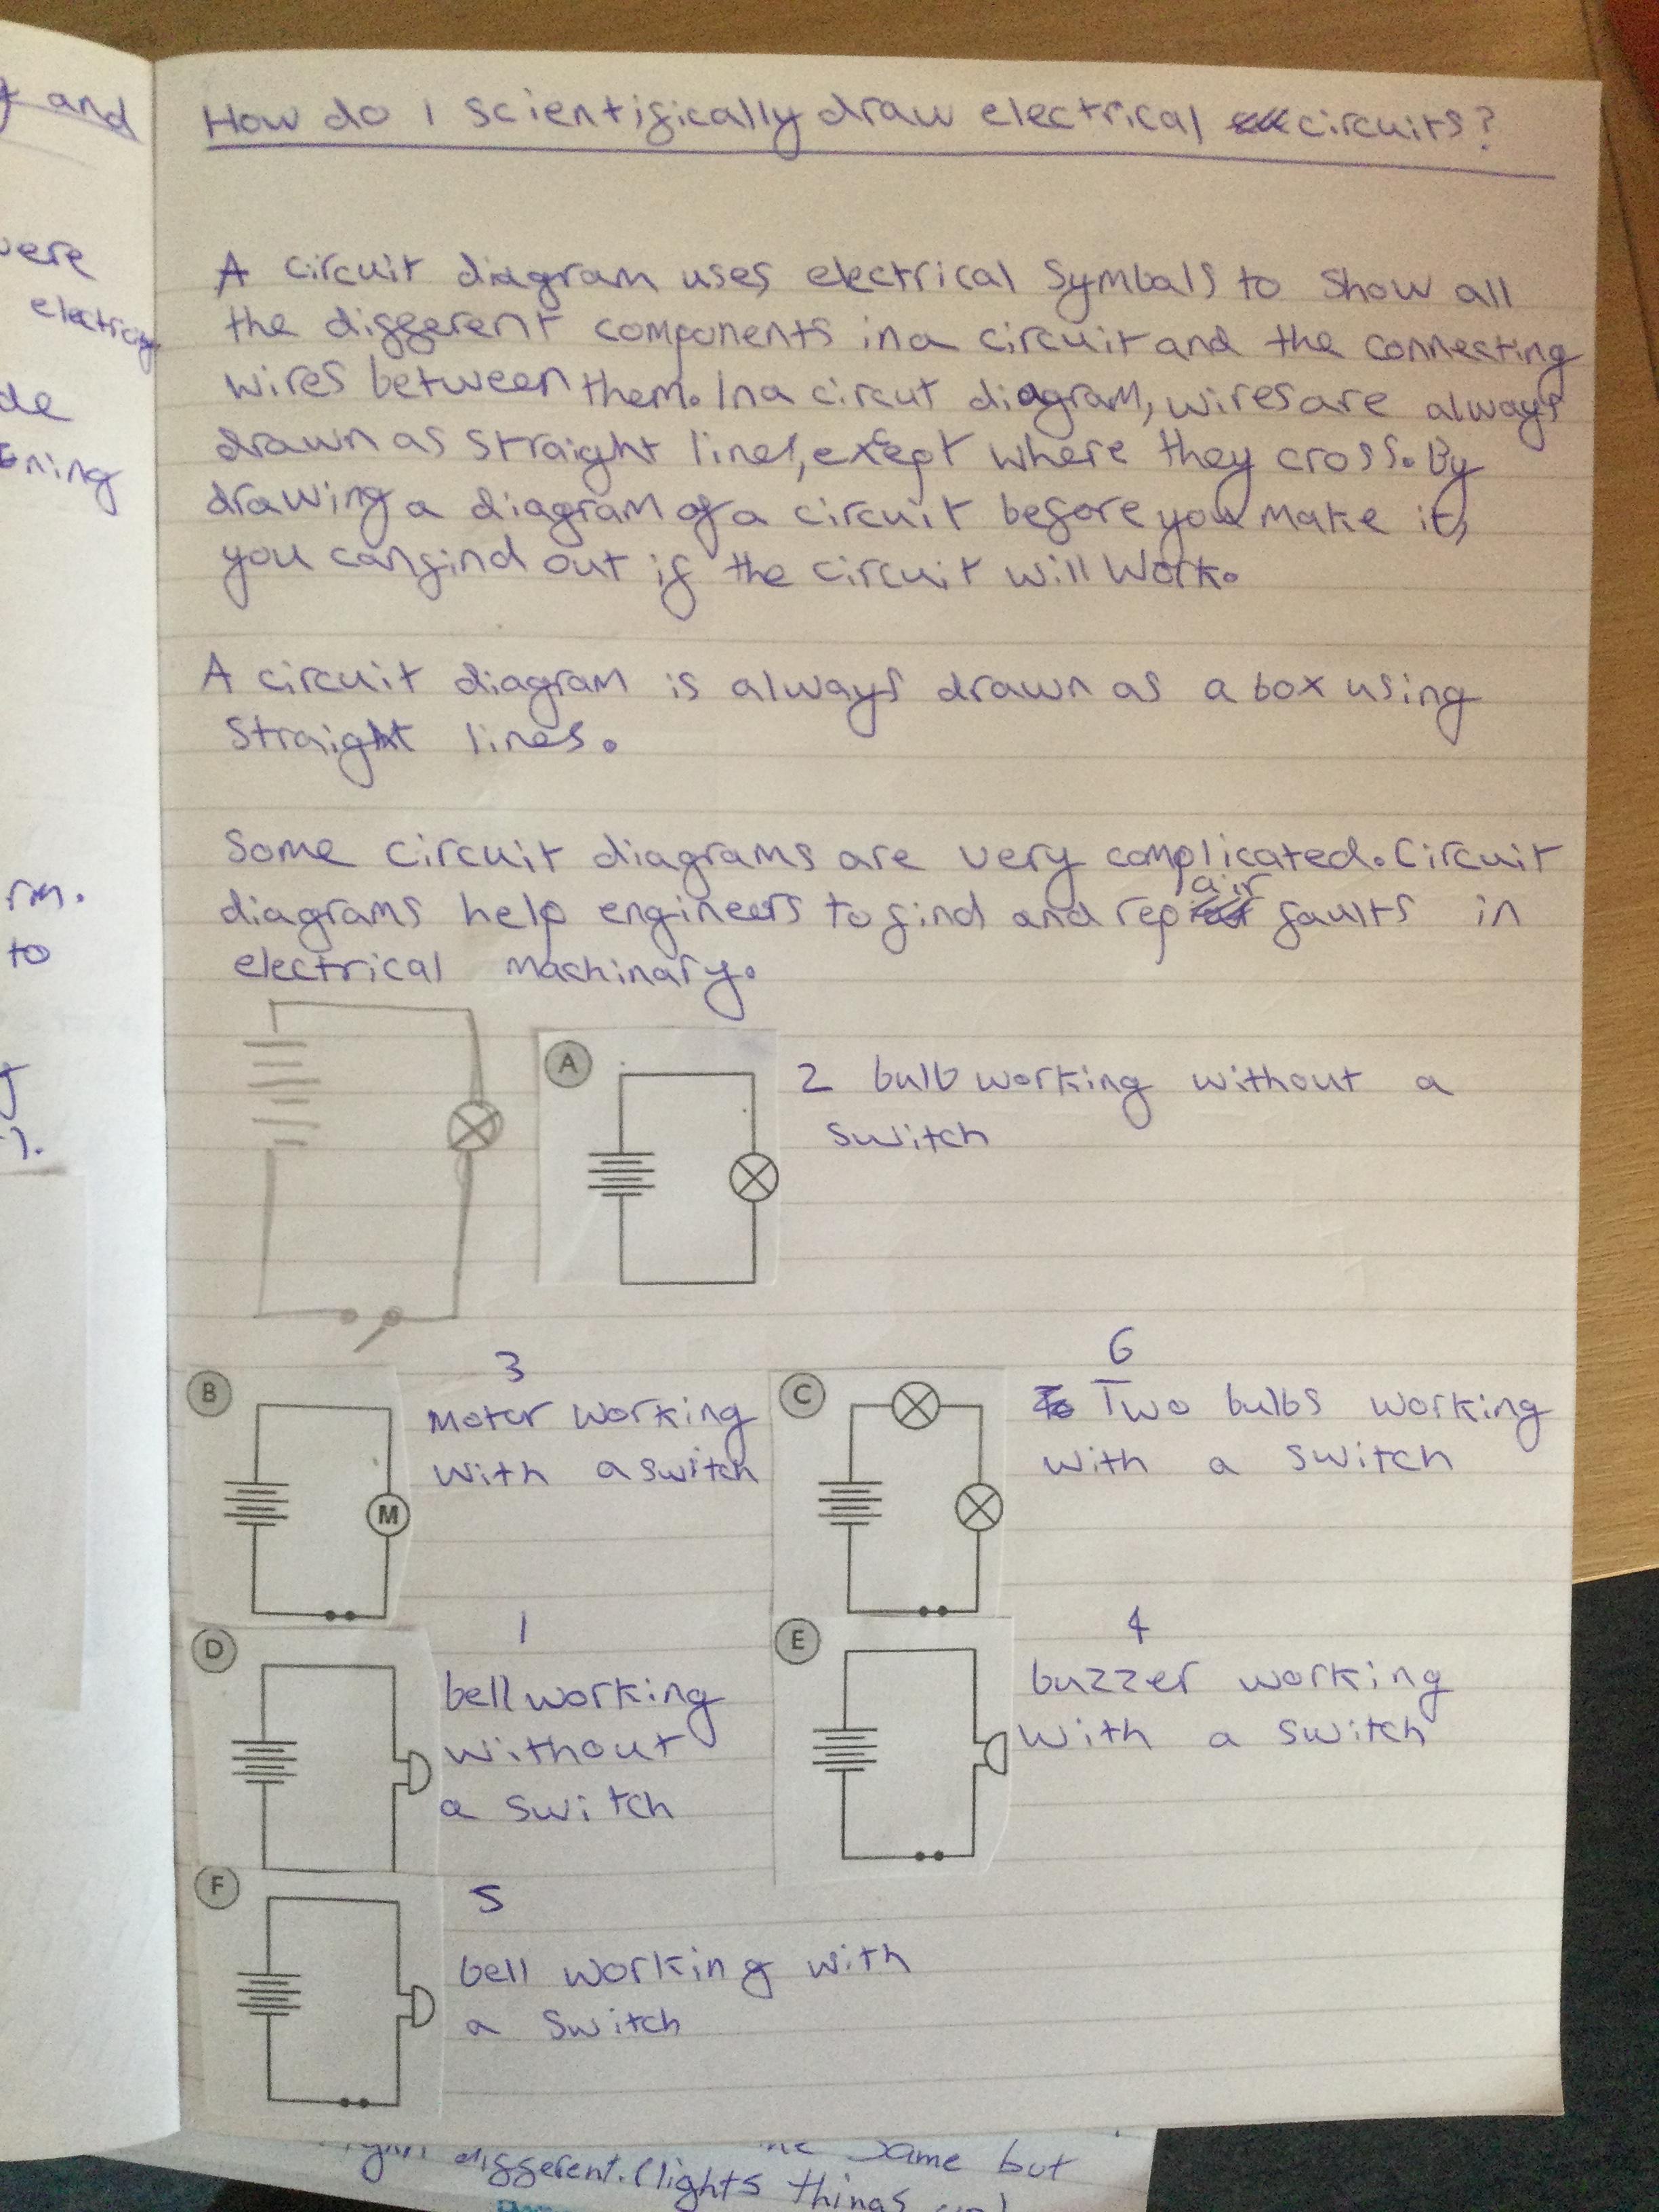 How do I scientifically draw electrical circuits?
A circuit diagram uses electrical Symbals to show all
the different components in a circuit and the connecting
wires between them. In a circut diagram, wires are always
drawn as straight lines, except where they cross. By
drawing a diagram of a circuit before you make it,
you can find out if the circuit will work.
A circuit diagram is always drawn as a box using
straight lines.
Some circuit diagrams are very complicated. Circuit
diagrams help engineers to find and repair faults in
electrical machinary.
A
2 bulb working without a
switch
B
3
Motor working
with a switch
M
C
6
Two bulbs working
with a switch
D
1
bell working
without
a switch
E
4
buzzer working
with a switch
F
5
bell working with
a switch
and
were
electricity
de
ning
rm.
to
same but
different. (lights things